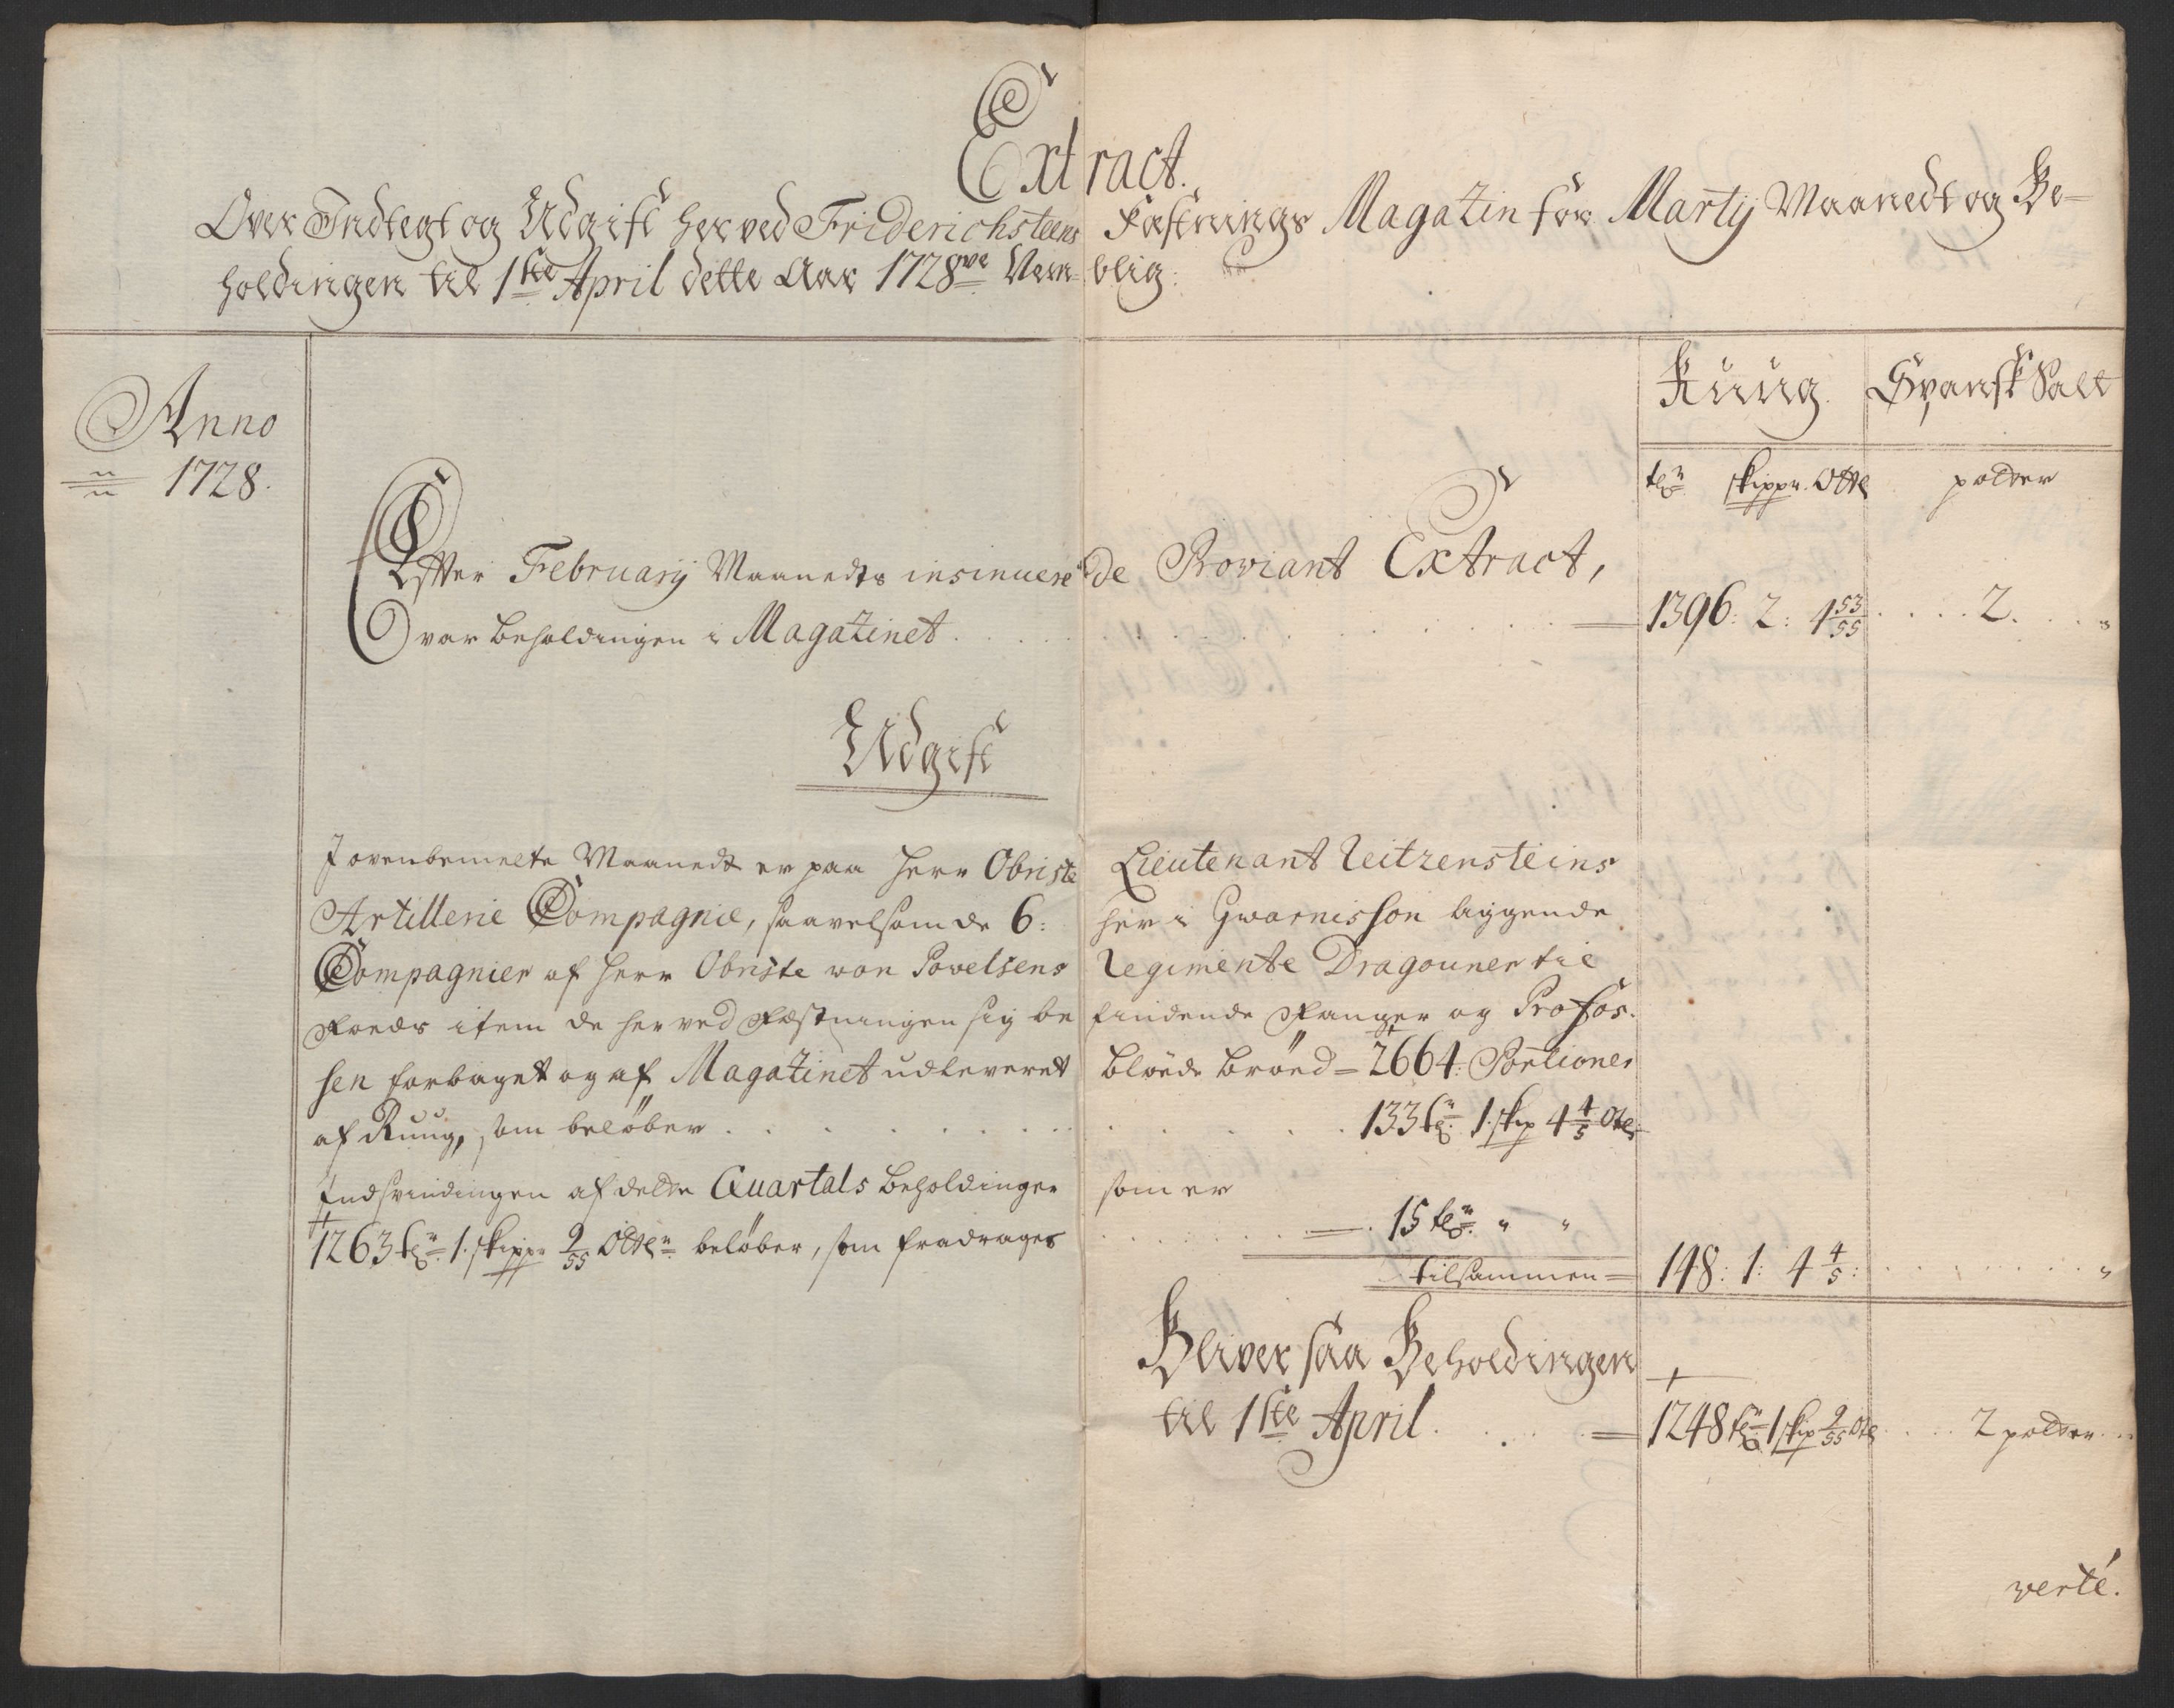 Extract.
Over Indtegt og Udgift her ved Friderichsteens Fæstnings Magazin for Martij Maanedt og Be-
holdingen til 1ste April dette Aar 1728ve Nem- blig:
Ruug. Spansk Salt
Anno
1728.
tør skippr. Otl polder
Efter February Maanedts insinuerede Proviant Extract,
var beholdingen i Magazinet . . . . = 1396: 2: 4 53/55 . . . . 2. . . "
Udgift
I ovenbemelte Maanedt er paa Herr Obriste Lieutenant Reitzensteins
Artillerie Compagnie, saavelsom de 6: her i Gwarnisson liggende
Compagnier af Herr Obriste von Povelsens Regimente Dragouner til
Foeds item de her ved Fæstningen sig be findende Fanger og Profos.
sen forbaget og af Magazinet udleveret bløde brøed = 2664: Portioner
af Ruug, som beløber . . . . 133 tr: 1. skip 4 4/5 Otl
Indsvindingen af dette Quartals beholdinger som er
1263 tr: 1. skippr 9/55 Ottl beløber, som fradrages . . . . = . 15 tr: " "
tilsammen = 148: 1: 4 4/5: . . . . "
Bliver saa Beholdingen
til 1ste April . . . = 1248 tr 1 skip 9/55 Otl . . . . 2 polder . .
verté.